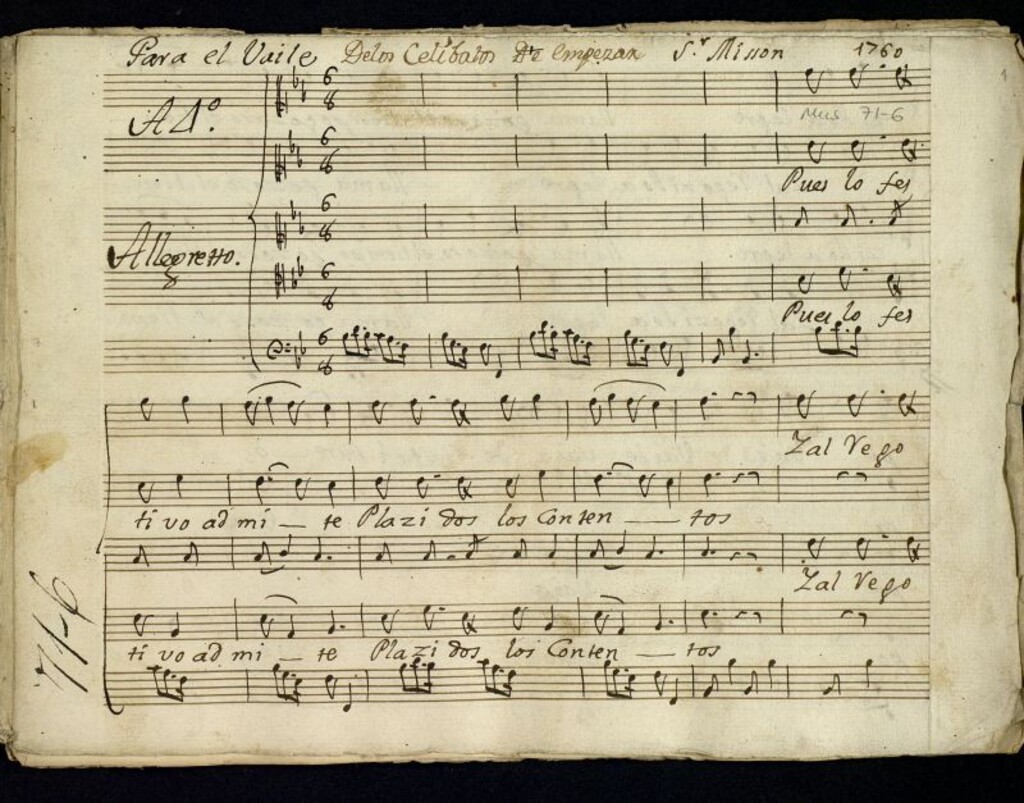 Para el Vaile Delos Celibatos De empezar S.r Misson 1760
A 4º.
Mus 71-6
1
Pues lo fes
Allegretto.
Pues lo fes
Zal Vego
ti vo ad mi — te Plazi dos los Conten — tos
Zal Vego
ti vo ad mi — te Plazi dos los Conten — tos
71-6